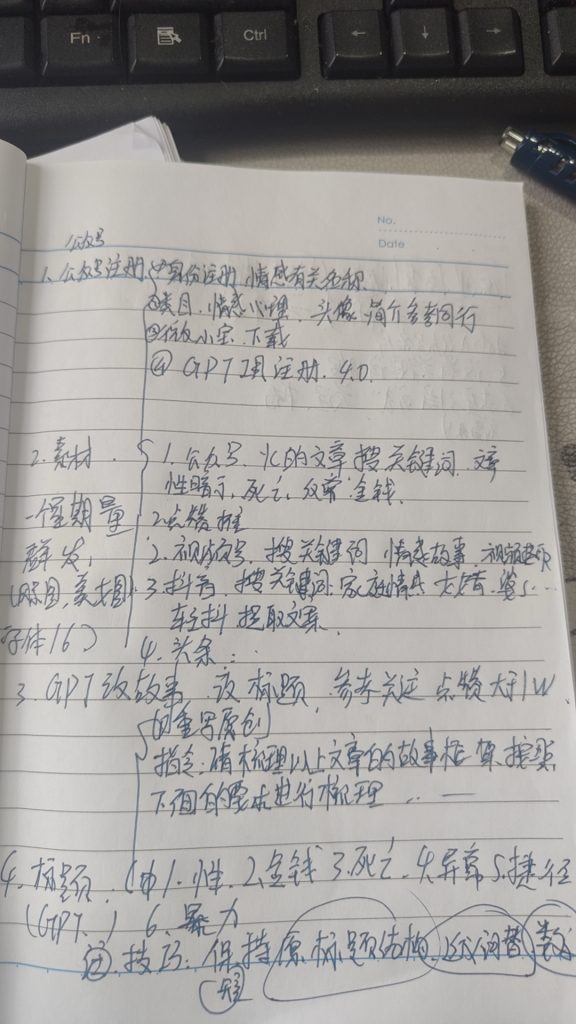 Fn
Ctrl
←
↓
→
No.
Date
公众号
1. 公众号注册 ①身份注册 情感有关名称
②类目. 情感心理. 头像 简介参考同行
③ 小宝 下载
④ GPT 注册. 4.0.
2. 素材. 1. 公众号. 火的文章 搜关键词
性暗示, 死亡, 金钱.
一个星期量 2点赞推
群发, 2. 视频号. 搜关键词 情感故事. 视频
(原图, 美女图) 3. 抖音. 搜关键词. 家庭情感
字体16) 轻抖 提取文案.
4. 头条..
3. GPT改故事. 改标题, 参考 关注 点赞大于1W
的重写原创
指令: 请梳理以上文章的故事框架. 按照
下面的要求进行梳理 .. —
4. 标题. (中 1. 性. 2. 金钱 3. 死亡. 4. 异常 5. 捷径
(GPT.) 6. 暴力
技巧: 保持原标题结构. 近义词替